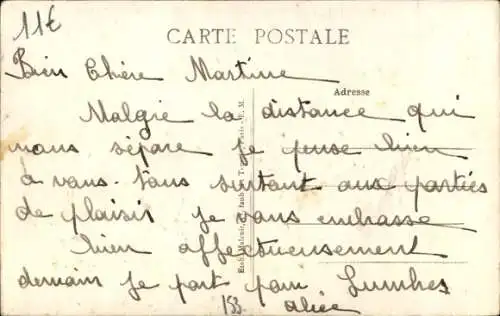 11€
CARTE POSTALE
Bien Chère Martine
Adresse
Malgré la distance qui
nous sépare je pense bien
à vous tous surtout aux parties
de plaisir je vous embrasse
bien affectueusement
demain je part pour
Alice
153